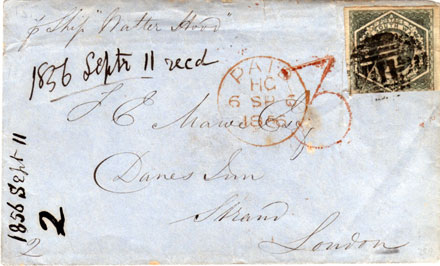 p Ship "Walter Hood"
1856 Septr 11 recd
PAID
HG
6 SP 6
1856
3
J E Esq
Danes Inn
Strand
London
1856 Sept 11
2
2